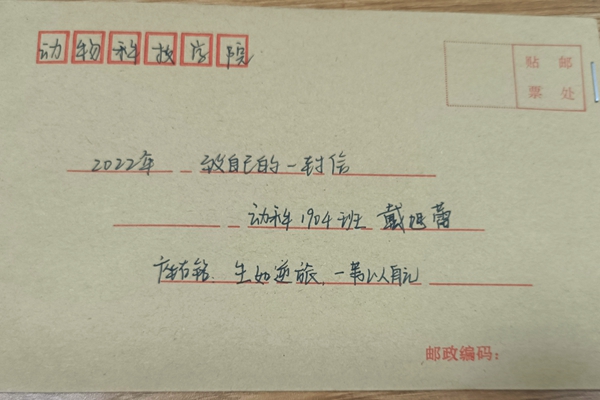 动物科技学院
贴 邮
票 处
2022年 致自己的一封信
动科1904班 戴
座右铭. 生如逆旅, 一苇以自
邮政编码: